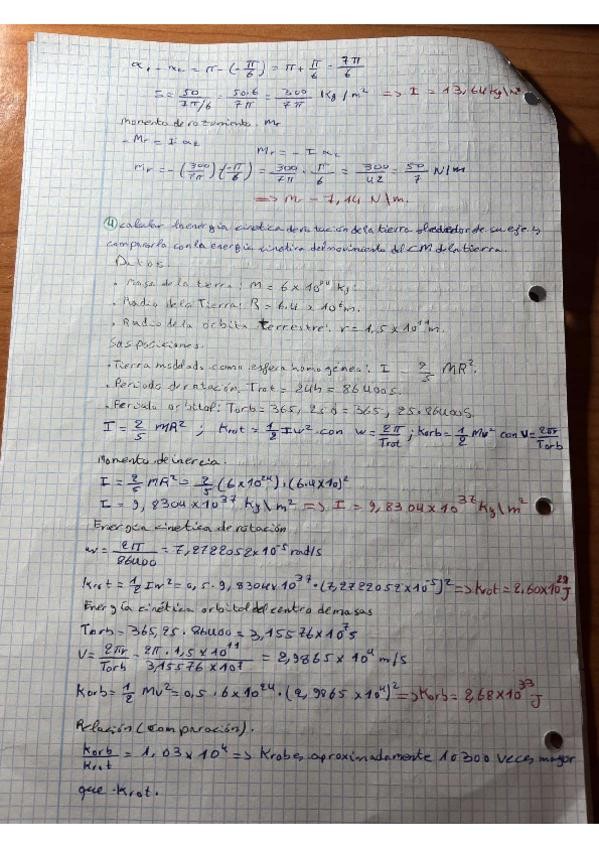 α₁ - α₂ = π - (-π/6) = π + π/6 = 7π/6
I = 50/(7π/6) = 50·6/7π = 300/7π kg/m² => I = 13,64 kg\m²
Momento de rozamiento. Mr
- Mr = I α₂
Mr = - I α₂
Mr = -(300/7π)·(-π/6) = 300/7π · π/6 = 300/42 = 50/7 N/m
=> Mr = 7,14 N/m.
④ calcular la energía cinética de rotación de la tierra alrededor de su eje y
compararla con la energía cinética del movimiento del CM de la tierra.
Datos:
· Masa de la tierra: M = 6 x 10²⁴ kg.
· Radio de la Tierra: R = 6.4 x 10⁶ m.
· Radio de la órbita terrestre: r = 1,5 x 10¹¹ m.
Sosposiciones:
· Tierra modelada como esfera homogénea: I = 2/5 MR².
· Periodo de rotación: Trot = 24h = 86400 s.
· Periodo orbital: Torb = 365,25 d = 365,25·86400 s.
I = 2/5 MR² ; Krot = 1/2 Iw² con w = 2π/Trot ; Korb = 1/2 Mv² con V = 2πr/Torb
Momento de inercia.
I = 2/5 MR² = 2/5 (6x10²⁴)·(6.4x10)²
I = 9,8304x10³⁷ Kg\m² => I = 9,8304x10³⁷ Kg\m²
Energía cinética de rotación
w = 2π/86400 = 7,2722052x10⁻⁵ rad/s
Krot = 1/2 Iw² = 0,5·9,8304x10³⁷·(7,2722052x10⁻⁵)² => Krot = 2.60x10²⁹ J
Energía cinética orbital del centro de masas
Torb = 365,25·86400 = 3,15576x10⁷ s
V = 2πr/Torb = 2π·1,5x10¹¹/3,15576x10⁷ = 2,9865x10⁴ m/s
Korb = 1/2 Mv² = 0,5·6x10²⁴·(2,9865x10⁴)² => Korb = 2,68x10³³ J
Relación (comparación).
Korb/Krot = 1,03x10⁴ => Krob es aproximadamente 10300 veces mayor
que Krot.